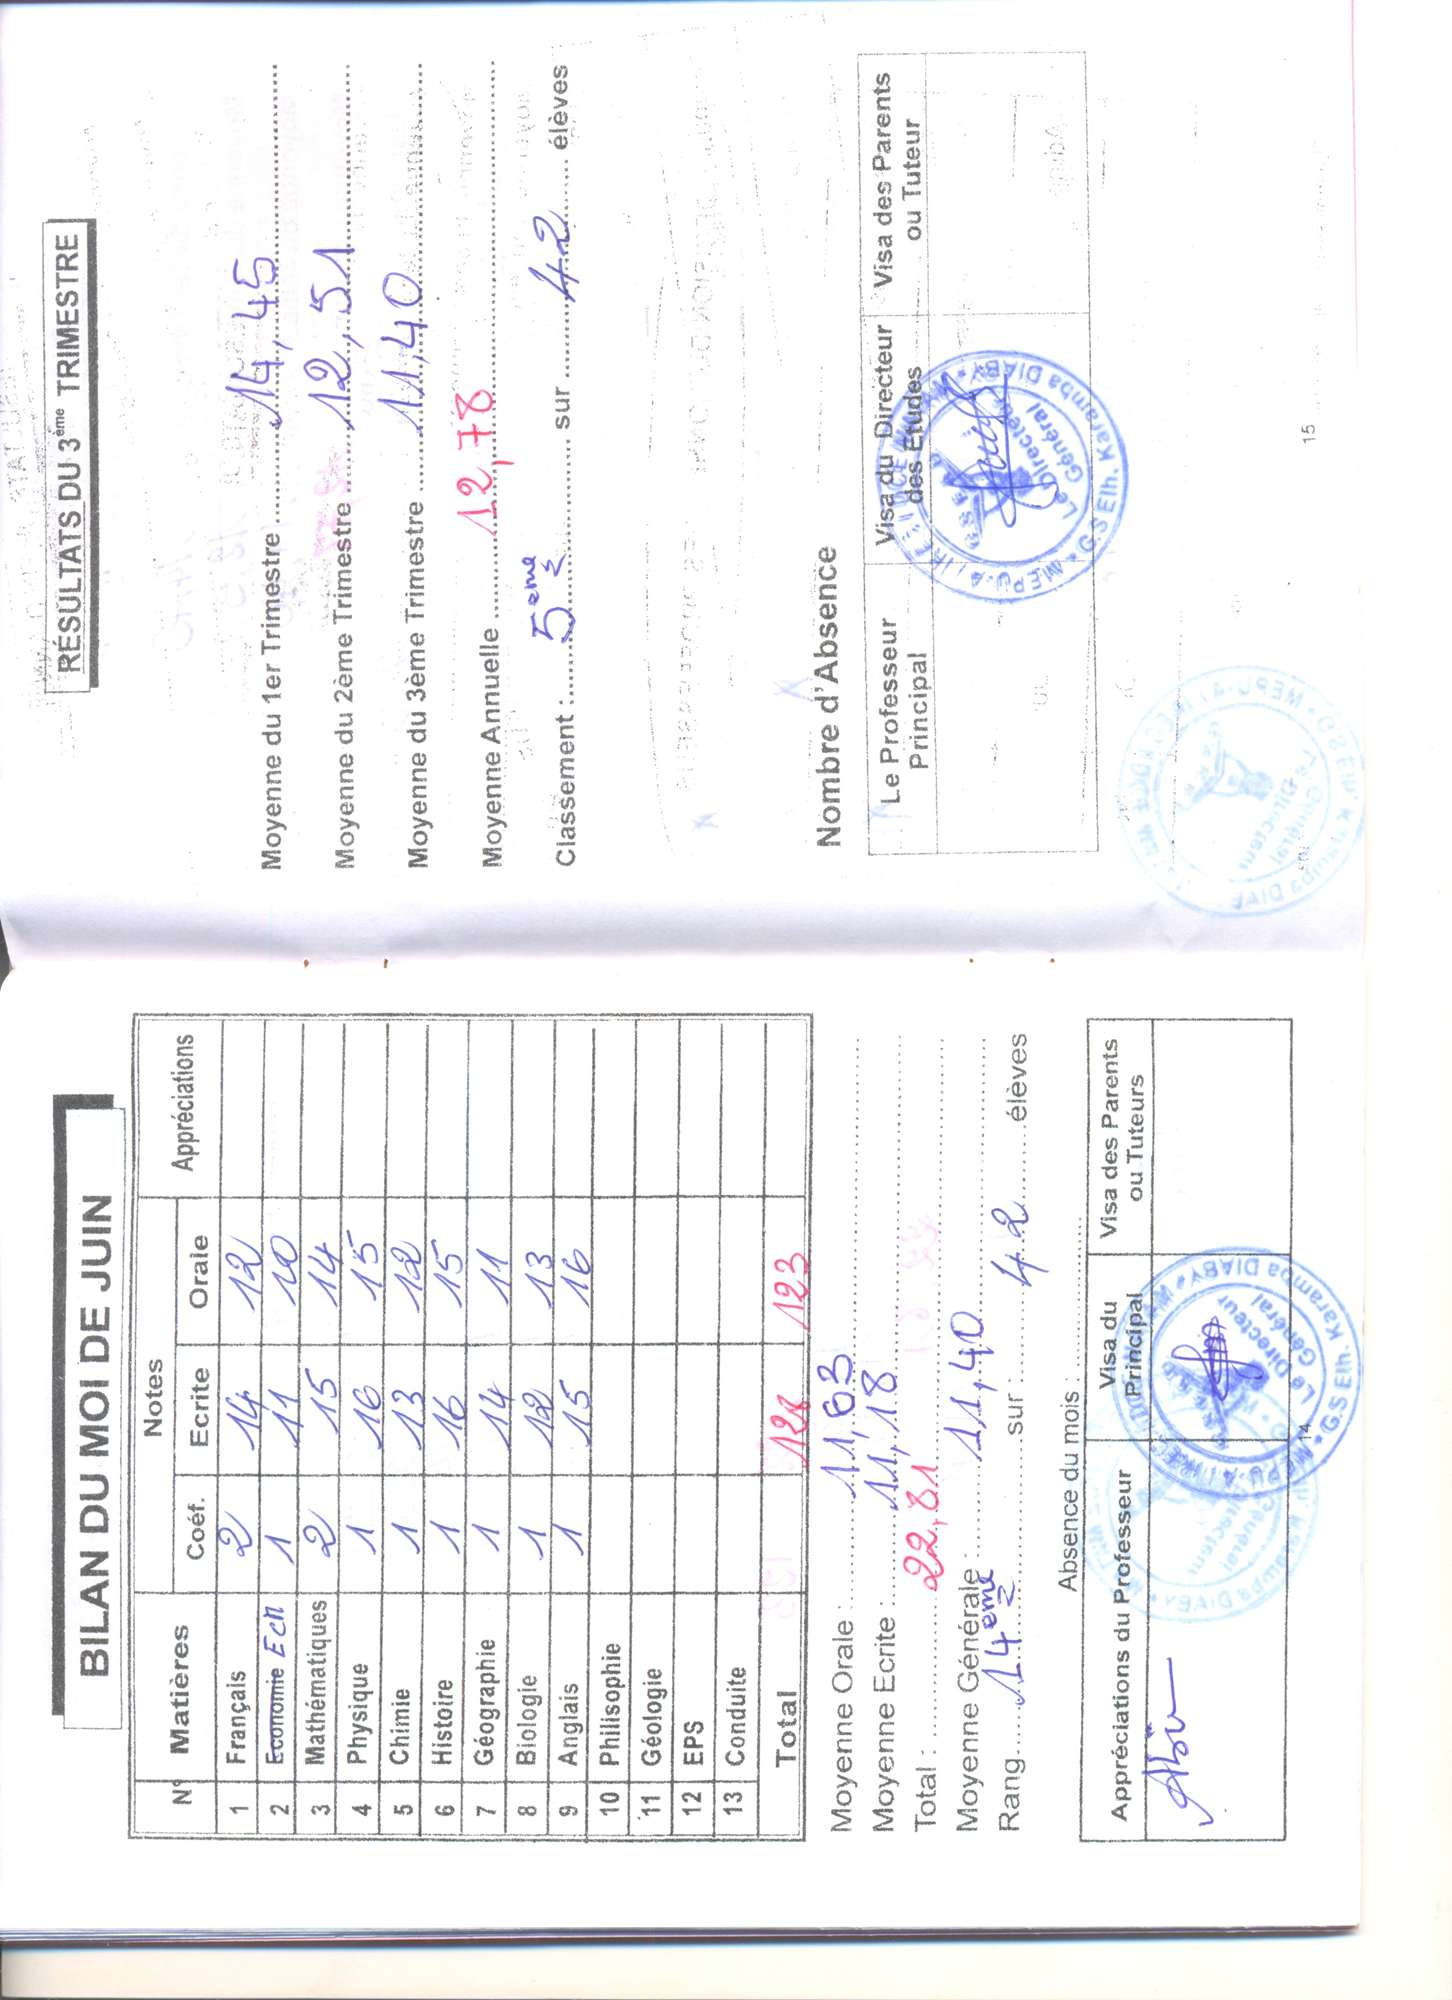 BILAN DU MOI DE JUIN
N° Matières Notes Appréciations
Coéf. Ecrite Orale
1 Français 2 14 12
2 Economie ECM 1 11 10
3 Mathématiques 2 15 14
4 Physique 1 16 15
5 Chimie 1 13 12
6 Histoire 1 16 15
7 Géographie 1 14 11
8 Biologie 1 12 13
9 Anglais 1 15 16
10 Philisophie
11 Géologie
12 EPS
13 Conduite
Total 123
Moyenne Orale : 11,63
Moyenne Ecrite : 11,18
Total : 22,81
Moyenne Générale : 11,40
Rang 14ème sur : 42 élèves
Absence du mois :
Appréciations du Professeur Visa du Principal Visa des Parents ou Tuteurs
G.S Elh. Karamba DIABY
Le Directeur Général
14
RÉSULTATS DU 3ème TRIMESTRE
Moyenne du 1er Trimestre 14,45
Moyenne du 2ème Trimestre 12,51
Moyenne du 3ème Trimestre 11,40
Moyenne Annuelle 12,78
Classement : 5ème sur 42 élèves
Nombre d'Absence
Le Professeur Principal Visa du Directeur des Etudes Visa des Parents ou Tuteur
G.S Elh. Karamba DIABY
Le Directeur Général
15